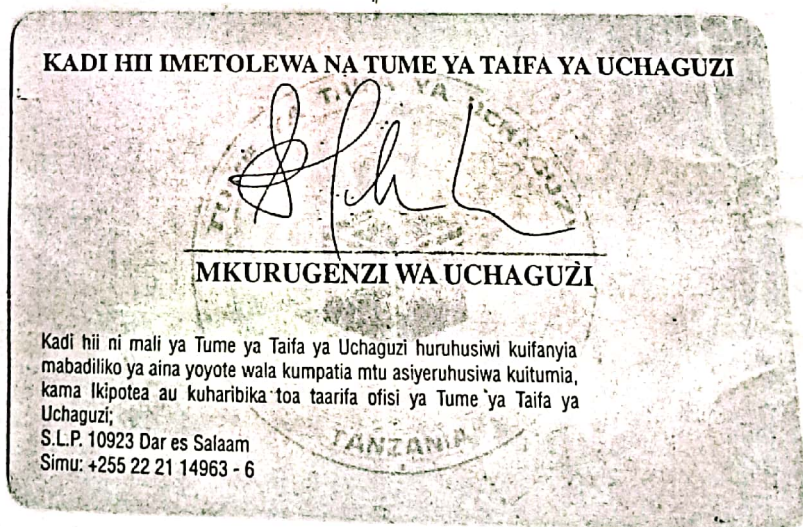 KADI HII IMETOLEWA NA TUME YA TAIFA YA UCHAGUZI
TUME YA TAIFA YA UCHAGUZI
MKURUGENZI WA UCHAGUZI
Kadi hii ni mali ya Tume ya Taifa ya Uchaguzi huruhusiwi kuifanyia
mabadiliko ya aina yoyote wala kumpatia mtu asiyeruhusiwa kuitumia,
kama Ikipotea au kuharibika toa taarifa ofisi ya Tume ya Taifa ya
Uchaguzi;
S.L.P. 10923 Dar es Salaam
Simu: +255 22 21 14963 - 6
TANZANIA